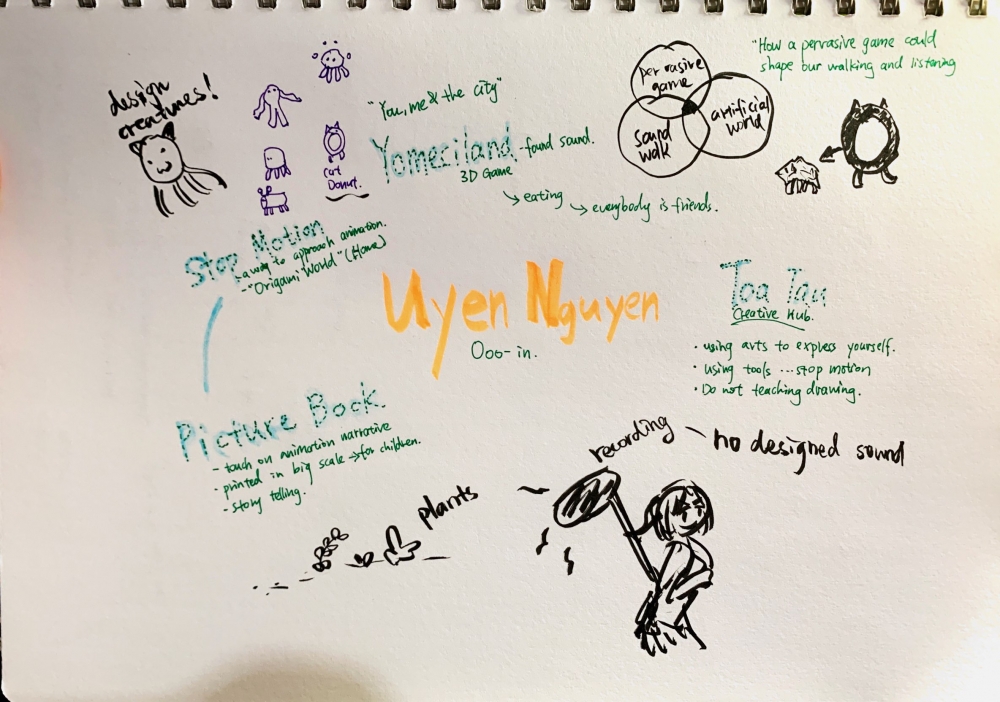 design
creatures!
cat
Donut.
"You, me & the city"
Yomeciland
- found sound.
3D Game
→ eating
→ everybody is friends.
pervasive
game
sound
walk
artificial
world
"How a pervasive game could
shape our walking and listening
Stop Motion
- a way to approach animation.
- "Origami World" (Home)
Uyen Nguyen
Ooo-in.
Toa Tàu
Creative Hub.
• using arts to express yourself.
• using tools ... stop motion
• Do not teaching drawing.
Picture Book
- touch on animation narrative
- printed in big scale → for children.
- story telling.
plants
recording - no designed sound